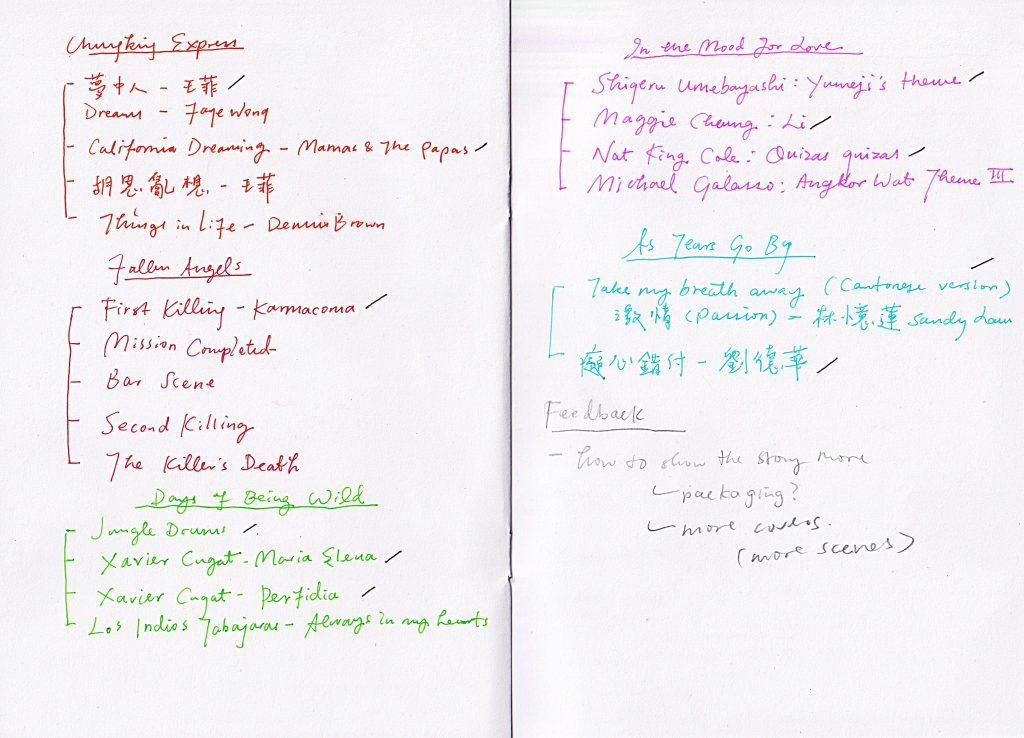 Chungking Express
- 夢中人 - 王菲 /
Dreams - Faye Wong
- California Dreaming - Mamas & The Papas /
- 胡思亂想 - 王菲
- Things in Life - Dennis Brown
Fallen Angels
- First Killing - Karmacoma /
- Mission Completed
- Bar Scene
- Second Killing
- The Killer's Death
Days of Being Wild
- Jungle Drums /
- Xavier Cugat - Maria Elena /
- Xavier Cugat - Perfidia /
- Los Indios Tabajaras - Always in my hearts
In the Mood for Love
- Shigeru Umebayashi : Yumeji's theme /
- Maggie Cheung : Li /
- Nat King Cole : Quizas quizas /
- Michael Galasso : Angkor Wat Theme III
As Tears Go By
- Take my breath away (Cantonese version) /
激情 (Passion) - 林憶蓮 Sandy Lam
- 癡心錯付 - 劉德華 /
Feedback
- how to show the story more
packaging?
more
(more scenes)